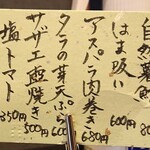 自然薯
はま吸い 600円
アスパラ肉巻き 680円
タラの芽天ぷら 600
サザエ壺焼き 500円
塩トマト 350円